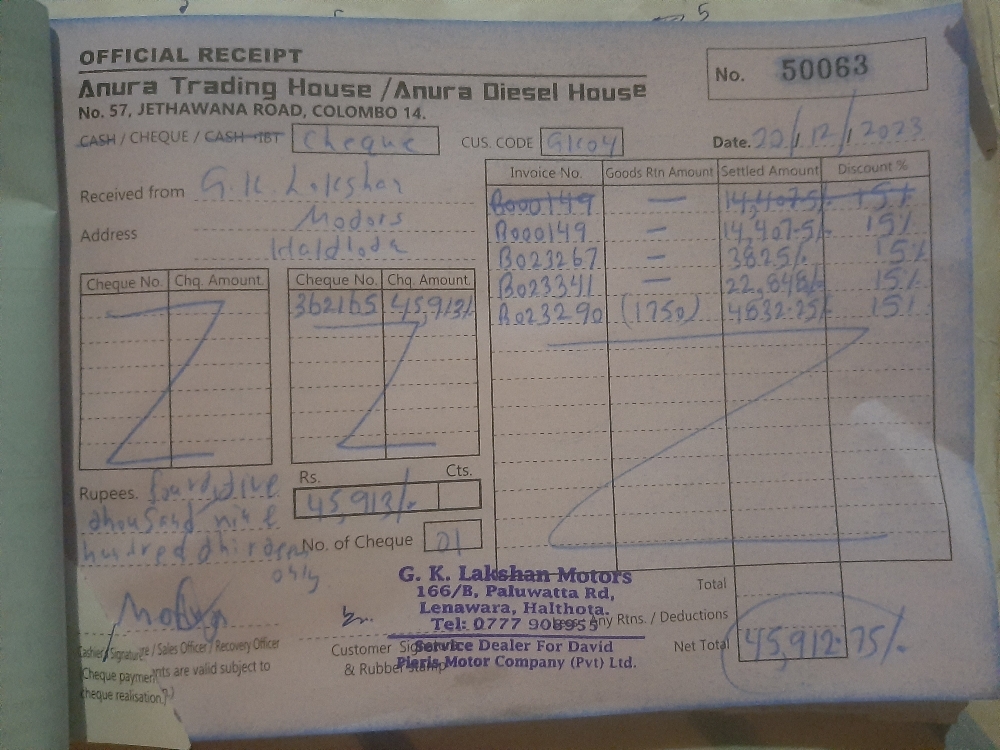 5
OFFICIAL RECEIPT
Anura Trading House /Anura Diesel House
No. 57, JETHAWANA ROAD, COLOMBO 14.
No. 50063
CASH / CHEQUE / CASH IBT Cheque CUS. CODE GK04 Date. 20/12/2023
Received from G.K. Lakshan
Address Modors
Haldloda
Invoice No. Goods Rtn Amount Settled Amount Discount %
B000149 — 14,407.5/ 15%
B000149 — 14,407.5/ 15%
B023267 — 3825/- 15%
B023341 — 22,848/- 15%
B023290 (1750) 4832.25/ 15%
Cheque No. Chq. Amount. Cheque No. Chq. Amount.
362165 45,913/-
Rupees. fourdyfive
thousand nine
hundred dhirdeen
only
Rs. Cts.
45,913/-
No. of Cheque 01
G. K. Lakshan Motors
166/B, Paluwatta Rd,
Lenawara, Halthota.
Tel: 0777 908955
Service Dealer For David
Pieris Motor Company (Pvt) Ltd.
Total
Any Rtns. / Deductions
Net Total 45,912.75/-
Cashier Signature / Sales Officer / Recovery Officer
Customer Signature
& Rubber Stamp
Cheque payments are valid subject to
cheque realisation.